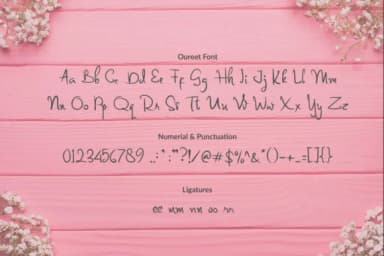 Oureet Font
Aa Bb Cc Dd Ee Ff Gg Hh Ii Jj Kk Ll Mm
Nn Oo Pp Qq Rr Ss Tt Uu Vv Ww Xx Yy Zz
Numerial & Punctuation
0123456789 .,:;'"?!/@#$%^&*()-+_=[]{}
Ligatures
ee mm nn oo rr